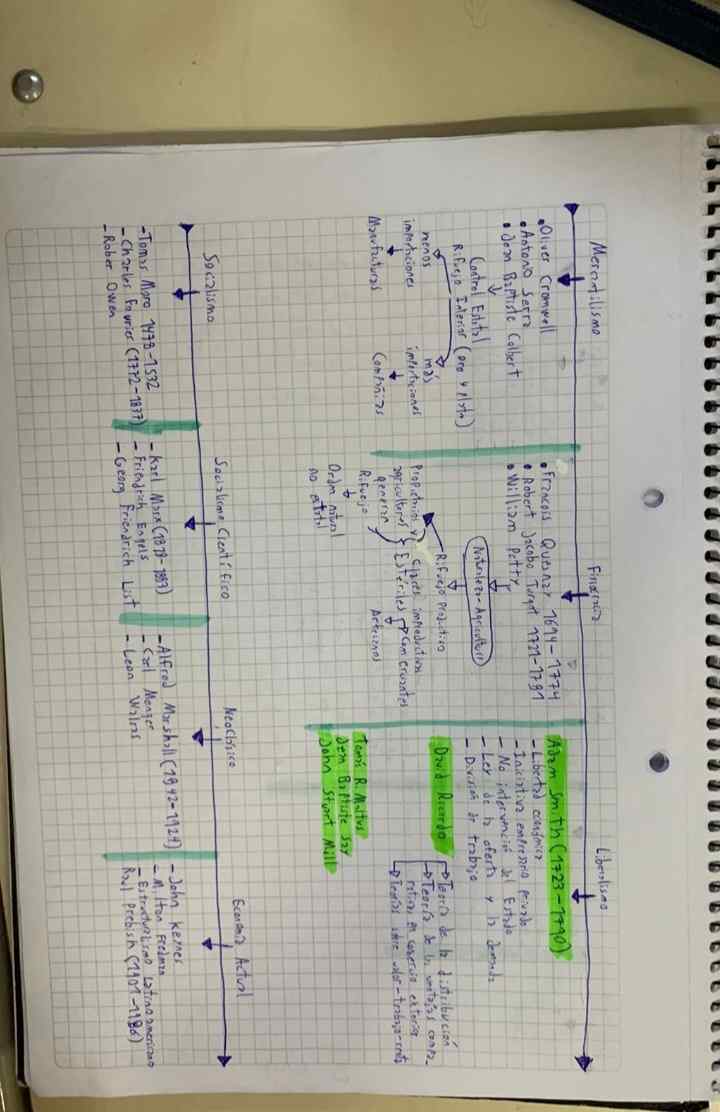 Mercantilismo
• Oliver Cromwell
• Antonio Serra
• Jean Baptiste Colbert
Control Estatal
Riqueza Interior (oro y plata)
menos
importaciones
Manufacturas
más
importaciones
Compañías
• Francois Quesnay 1694-1774
• Robert Jacobo Turgot 1721-1781
• William Petty
Naturaleza-Agricultura
Riqueza Productiva
Propietarios y
agricultores
generar
Riqueza
Clases improductivas
Estériles
Comerciantes
Artesanos
Orden natural
no estatal
Liberalismo
Adam Smith (1723-1790)
- Libertad económica
- Iniciativa empresaria privada
- No intervención del Estado
- Ley de la oferta y la demanda
- División de trabajo
David Ricardo
Teoría de la distribución
Teoría de las ventajas compa-
rativas en comercio exterior
Teorías sobre valor-trabajo-renta
Tomás R. Maltus
Jean Baptiste Say
John Stuart Mill
Socialismo
- Tomas Moro 1478-1532
- Charles Fourier (1772-1837)
- Rober Owen
Socialismo Científico
- Karl Marx (1818-1883)
- Friendrich Engels
- Georg Friendrich List
Neoclásico
- Alfred Marshall (1842-1924)
- Carl Menger
- Leon Walras
Economía Actual
- John Keynes
- Milton Fredman
- Estructuralismo Latinoamericano
Raul Prebish (1901-1986)